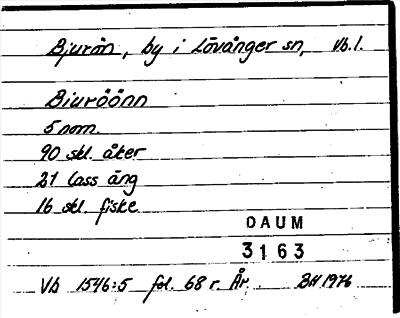 Bjurön, by i Lövånger sn, Vb.l.
Biuröönn
5 nom.
90 skl. åker
27 lass äng
16 skl. fiske
DAUM
3163
Vb 1546:5 fol. 68 r. År. BH 1976